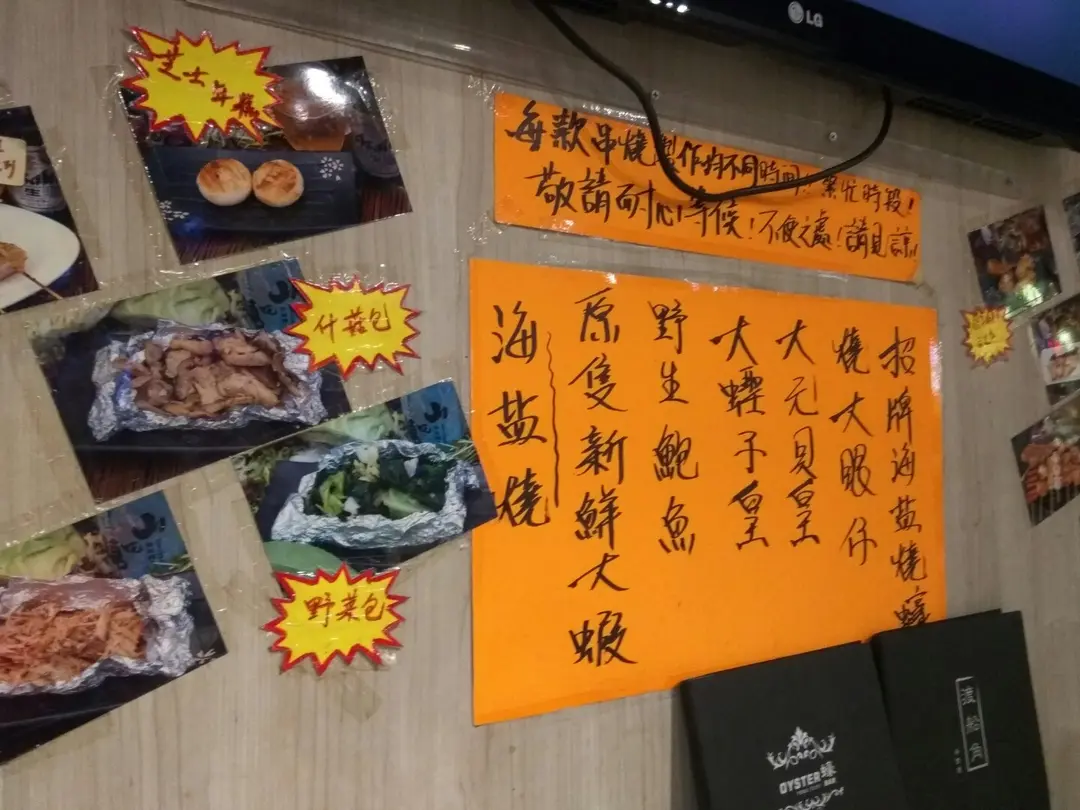 LG
芝士年糕
每款串燒製作均不同時間!繁忙時段!
敬請耐心等候!不便之處!請見諒!!
什菇包
野菜包
招牌海盐燒蠔
燒大眼仔
大元貝皇
大蟶子皇
野生鮑魚
原隻新鮮大蝦
海盐燒
渡船角
OYSTER蠔
BAR